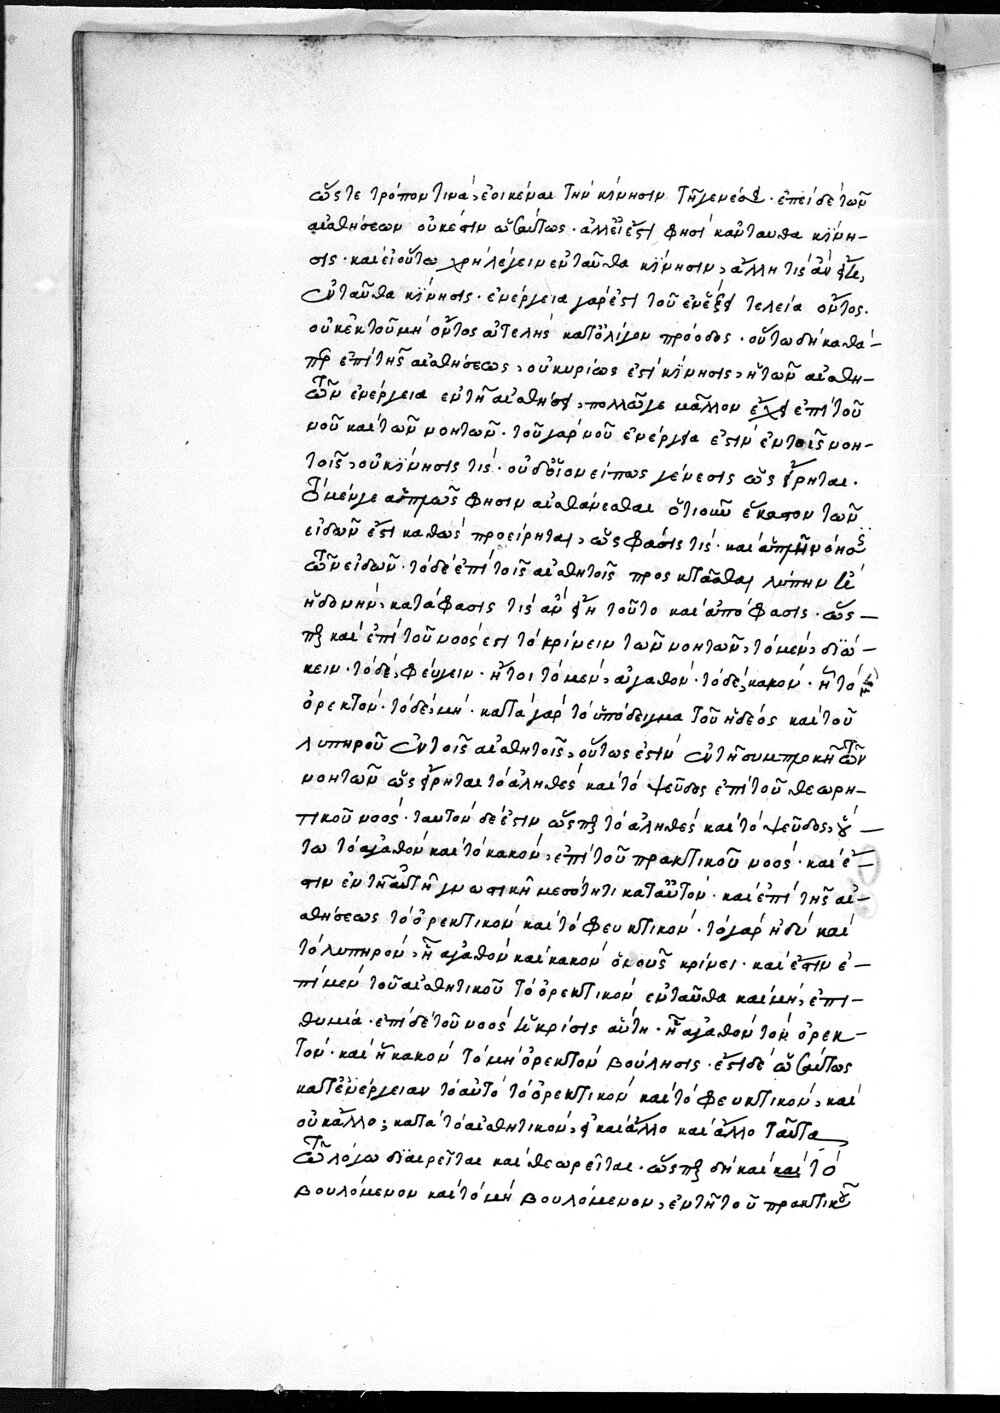 ὥς τε τρόπον τινὰ, ἐοικέναι τὴν κίνησιν τῇ γενέσει· ἐπεὶ δὲ τῶν
αἰσθήσεων οὐκ ἔστιν ὡσαύτως· ἀλλ' εἰ ἔστι φησὶ κἀνταυθα κίνη-
σις· καὶ εἰ οὕτω χρὴ λέγειν ἐνταῦθα κίνησιν, ἄλλη τὶς ἂν εἴη
ἐνταῦθα κίνησις· ἐνέργεια γάρ ἐστι τοῦ ἐν ἕξει τελεία ὄντος·
οὐκ ἐκ τοῦ μὴ ὄντος ἀτελὴς κατ' ὀλίγον πρόοδος· οὕτω δὴ καθά-
περ ἐπὶ τῆς αἰσθήσεως, οὐ κυρίως ἐστὶ κίνησις, ἡ τῶν αἰσθη-
τῶν ἐνέργεια ἐν τῇ αἰσθήσει, πολλῷ γε μᾶλλον ἔχει ἐπὶ τοῦ
νοῦ καὶ τῶν νοητῶν· τοῦ γὰρ νοῦ ἐνέργεια ἐστὶν ἐν τοῖς νοη-
τοῖς, οὐ κίνησις τίς· οὐδ' οἷον εἴπως γένεσις ὡς εἴρηται·
τὸ μέν γε ἁπλῶς φησιν αἰσθάνεσθαι ὁτιοῦν ἕκαστον τῶν
εἰδῶν ἐστὶ καθὼς προείρηται, ὡς φάσις τίς· καὶ ἁπλῆ νόησις
τῶν εἰδῶν· τὸ δὲ ἐπὶ τοῖς αἰσθητοῖς προσκτᾶσθαι λύπην ἢ
ἡδονὴν, κατάφασις τίς ἂν εἴη τοῦτο καὶ ἀπόφασις· ὥς-
περ καὶ ἐπὶ τοῦ νοός ἐστι τὸ κρίνειν τῶν νοητῶν, τὸ μὲν, διώ-
κειν· τὸ δὲ, φεύγειν· ἤτοι τὸ μὲν, ἀγαθόν· τὸ δὲ, κακόν· ἢ τὸ μὲν
ὀρεκτόν· τὸ δὲ, μή· κατὰ γὰρ τὸ ὑπόδειγμα τοῦ ἡδέος καὶ τοῦ
λυπηροῦ ἐν τοῖς αἰσθητοῖς, οὕτως ἐστὶν ἐν τῇ συμπλοκῇ τῶν
νοητῶν ὡς εἴρηται τὸ ἀληθὲς καὶ τὸ ψεῦδος ἐπὶ τοῦ θεωρη-
τικοῦ νοός· ταυτὸν δέ ἐστιν ὥσπερ τὸ ἀληθὲς καὶ τὸ ψεῦδος, οὕ-
τω τὸ ἀγαθὸν καὶ τὸ κακὸν, ἐπὶ τοῦ πρακτικοῦ νοός· καὶ ἔ-
στιν ἐν τῇ αὐτῇ γνωστικῇ μεσότητι κατ' αὐτόν· καὶ ἐπὶ τῆς αἰ-
σθήσεως τὸ ὀρεκτικὸν καὶ τὸ φευκτικόν· τὸ γὰρ ἡδὺ καὶ
τὸ λυπηρὸν, ἢ ἀγαθὸν καὶ κακὸν ὁ νοῦς κρίνει· καὶ ἔστιν ἐ-
πὶ μὲν τοῦ αἰσθητικοῦ τὸ ὀρεκτικὸν ἐνταῦθα καὶ μὴ, ἐπι-
θυμία· ἐπὶ δὲ τοῦ νοὸς ἡ κρίσις αὕτη· ἢ ἀγαθὸν τὸν ὀρεκ-
τόν· καὶ ἢ κακὸν τὸ μὴ ὀρεκτὸν βούλησις· ἔστι δὲ ὡσαύτως
κατ' ἐνέργειαν τὸ αὐτὸ τὸ ὀρεκτικὸν καὶ τὸ φευκτικὸν, καὶ
οὐκ ἄλλο; κατὰ τὸ αἰσθητικὸν, εἰ καὶ ἄλλο καὶ ἄλλο ταῦτα
τῷ λόγῳ διαιρεῖται καὶ θεωρεῖται· ὥσπερ δὴ καὶ καὶ τὸ
βουλόμενον καὶ τὸ μὴ βουλόμενον, ἐν τῇ τοῦ πρακτικοῦ